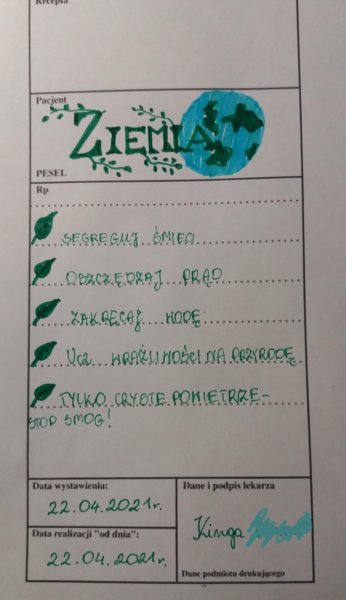 Recepta
Pacjent
ZIEMIA
PESEL
Rp
SEGREGUJ ŚMIECI
OSZCZĘDZAJ PRĄD
ZAKRĘCAJ WODĘ
UCZ WRAŻLIWOŚCI NA PRZYRODĘ
TYLKO CZYSTE POWIETRZE-
STOP SMOG!
Data wystawienia:
22.04.2021r.
Data realizacji "od dnia":
22.04.2021r.
Dane i podpis lekarza
Kinga
Dane podmiotu drukującego